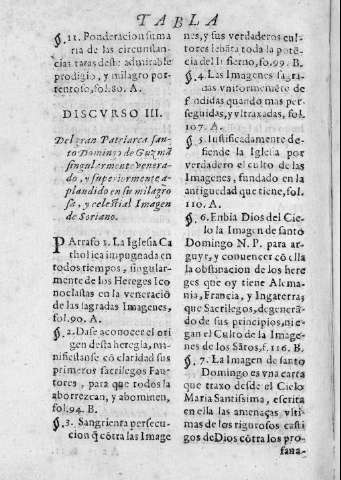 TABLA
§.11. Ponderacion suma
ria de las circunstan
cias raras deste admirable
prodigio, y milagro por-
tentoso, fol.80. A.
DISCVRSO III.
Del gran Patriarca san-
to Domingo de Guzmã
singularmente venera-
do, y superiormente a-
plandido en su milagro
sa, y celestial Imagen
de Soriano.
PArrafo 1. La Iglesia Ca
tholica impugeada en
todos tiempos, singular-
mente de los Hereges Ico
noclastas en la veneraciõ
de las sagradas Imagenes,
fol.90. A.
§.2. Dase aconocer el ori
gen desta heregia, ma-
nifiestanse cõ claridad sus
primeros sacrilegos Fau-
tores, para que todos la
aborrezcan, y abominen,
fol.94. B.
§.3. Sangrienta persecu-
cion q̃ cõtra las Image
nes, y sus verdaderos cul-
tores lebãta toda la potẽ-
cia del Infierno, fo.99. B.
§.4. Las Imagenes sagra-
das vniformemẽte de
fendidas quando mas per-
seguidas, y vltraxadas, fol.
107. A.
§.5. Iustificadamente de-
fiende la Iglesia por
verdadero el culto de las
Imagenes, fundado en la
antiguedad que tiene, fol.
110. A.
§.6. Enbia Dios del Cie-
lo la Imagen de santo
Domingo N. P. para ar-
guyr, y conuencer cõ ella
la obstinacion de los here
ges que oy tiene Alema-
nia, Francia, y Ingaterra;
que Sacrilegos, degenerã-
do de sus principios, nie-
gan el Culto de la Image-
nes de los Sãtos, f.116. B.
§.7. La Imagen de santo
Domingo es vna carta
que traxo desde el Cielo
Maria Santissima, escrita
en ella las amenaças vlti-
mas de los rigurosos casti
gos de Dios cõtra los pro-
fana-